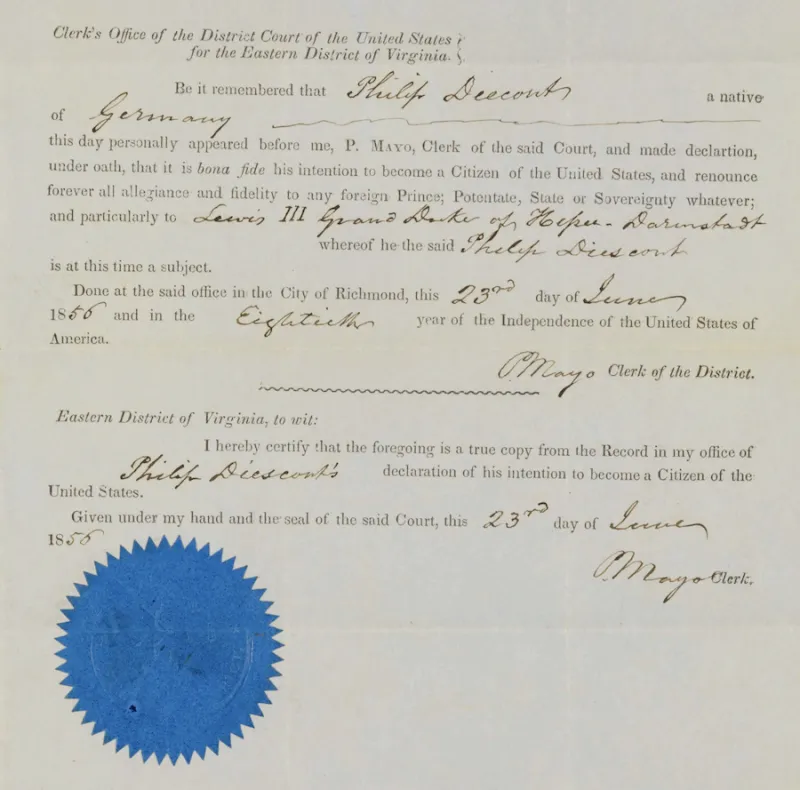 Clerk's Office of the District Court of the United States }
for the Eastern District of Virginia. }
Be it remembered that Philip Diescont a native
of Germany
this day personally appeared before me, P. Mayo, Clerk of the said Court, and made declartion,
under oath, that it is bona fide his intention to become a Citizen of the United States, and renounce
forever all allegiance and fidelity to any foreign Prince; Potentate, State or Sovereignty whatever;
and particularly to Lewis III Grand Duke of Hesse-Darmstadt
whereof he the said Philip Diescont
is at this time a subject.
Done at the said office in the City of Richmond, this 23rd day of June
1856 and in the Eightieth year of the Independence of the United States of
America.
P. Mayo Clerk of the District.
Eastern District of Virginia, to wit:
I hereby certify that the foregoing is a true copy from the Record in my office of
Philip Diescont's declaration of his intention to become a Citizen of the
United States.
Given under my hand and the seal of the said Court, this 23rd day of June
1856
P. Mayo Clerk.